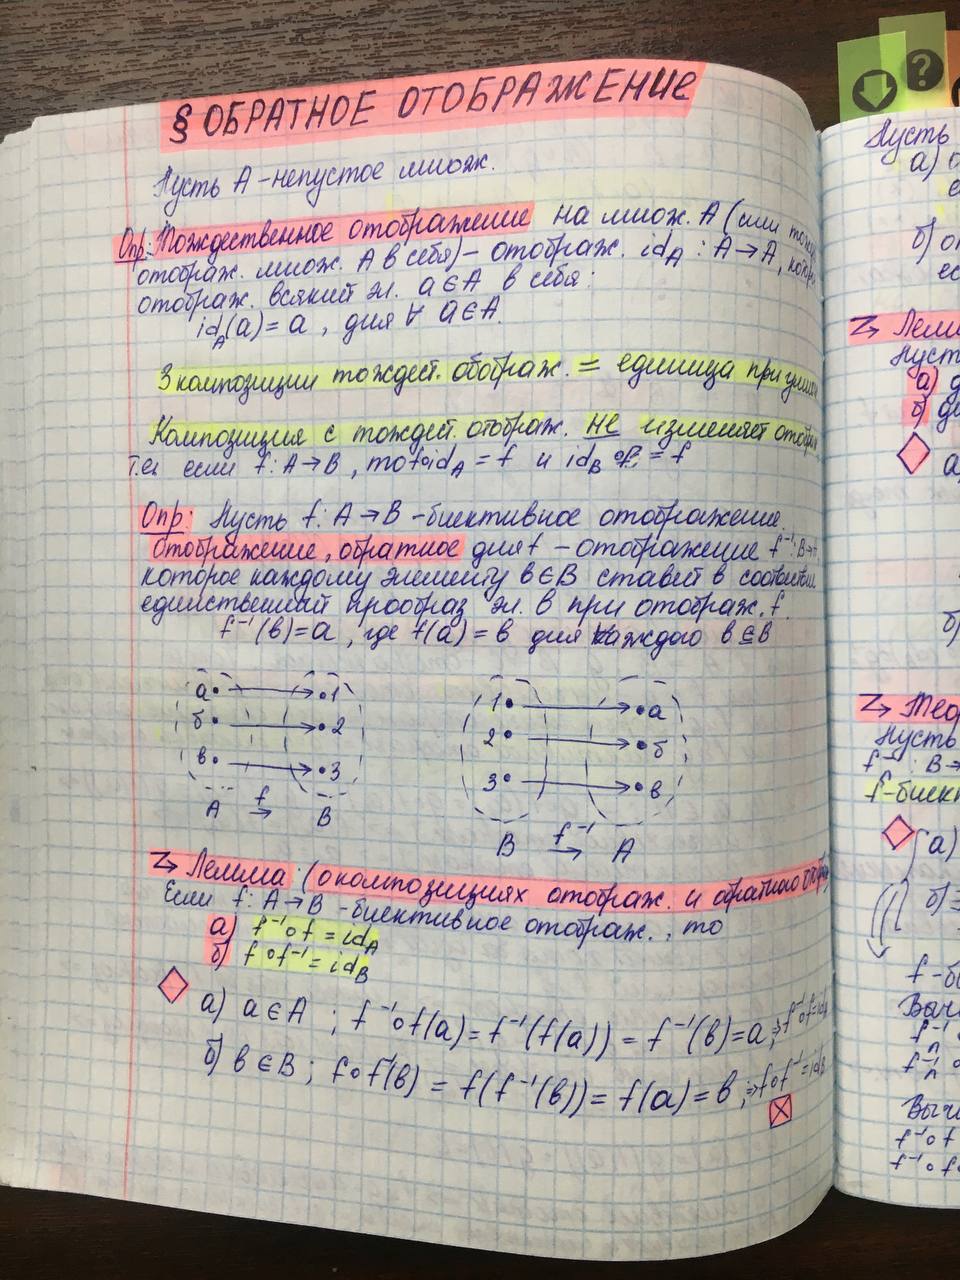 § ОБРАТНОЕ ОТОБРАЖЕНИЕ
Пусть A - непустое множ.
Опр: Тождественное отображение на множ. A (или тожд
отображ. множ. A в себя) - отображ. id_A : A → A, котор
отображ. всякий эл. a ∈ A в себя:
id_A(a) = a , для ∀ a ∈ A
З композиции тождест. обображ. = единица при умнож
Композиция с тождест. отображ. НЕ изменяет отобр
т.е. если f: A → B , то f∘id_A = f и id_B∘f = f
Опр: Пусть f: A → B - биективное отображение.
Отображение, обратное для f - отображение f⁻¹: B →
которое каждому элементу в ∈ B ставит в соответствие
единственный прообраз эл. в при отображ. f.
f⁻¹(в) = a , где f(a) = в для каждого в ∈ B
а • → • 1
б • → • 2
в • → • 3
A f → B
1 • → • а
2 • → • б
3 • → • в
B f⁻¹ → A
Лемма (о композициях отображ. и обратного отобр
Если f: A → B - биективное отображ. , то
а) f⁻¹∘f = id_A
б) f∘f⁻¹ = id_B
а) a ∈ A ; f⁻¹∘f(a) = f⁻¹(f(a)) = f⁻¹(в) = a ; ⇒ f⁻¹∘f = id_A
б) в ∈ B ; f∘f⁻¹(в) = f(f⁻¹(в)) = f(a) = в ; ⇒ f∘f⁻¹ = id_B
?
Пусть
а)
б)
ес
Лемм
Пуст
а) д
б) ди
а)
б)
Теор
Пусть
f⁻¹ : B →
f - биект
а)
б)
f - би
Вычи
Вычи
f⁻¹∘f
f⁻¹∘f